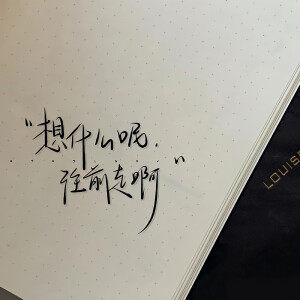 "想什么呢.
往前走啊"
LOUISE